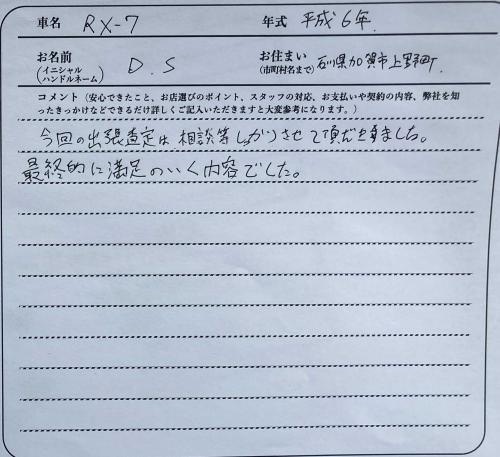 車名 RX-7 年式 平成6年.
お名前 (イニシャル ハンドルネーム) D.S お住まい (市町村名まで) 石川県加賀市上野町.
コメント(安心できたこと、お店選びのポイント、スタッフの対応、お支払いや契約の内容、弊社を知
ったきっかけなどできるだけ詳しくご記入いただきますと大変参考になります。)
今回の出張査定は相談等しっかりさせて頂だきました。
最終的に満足のいく内容でした。